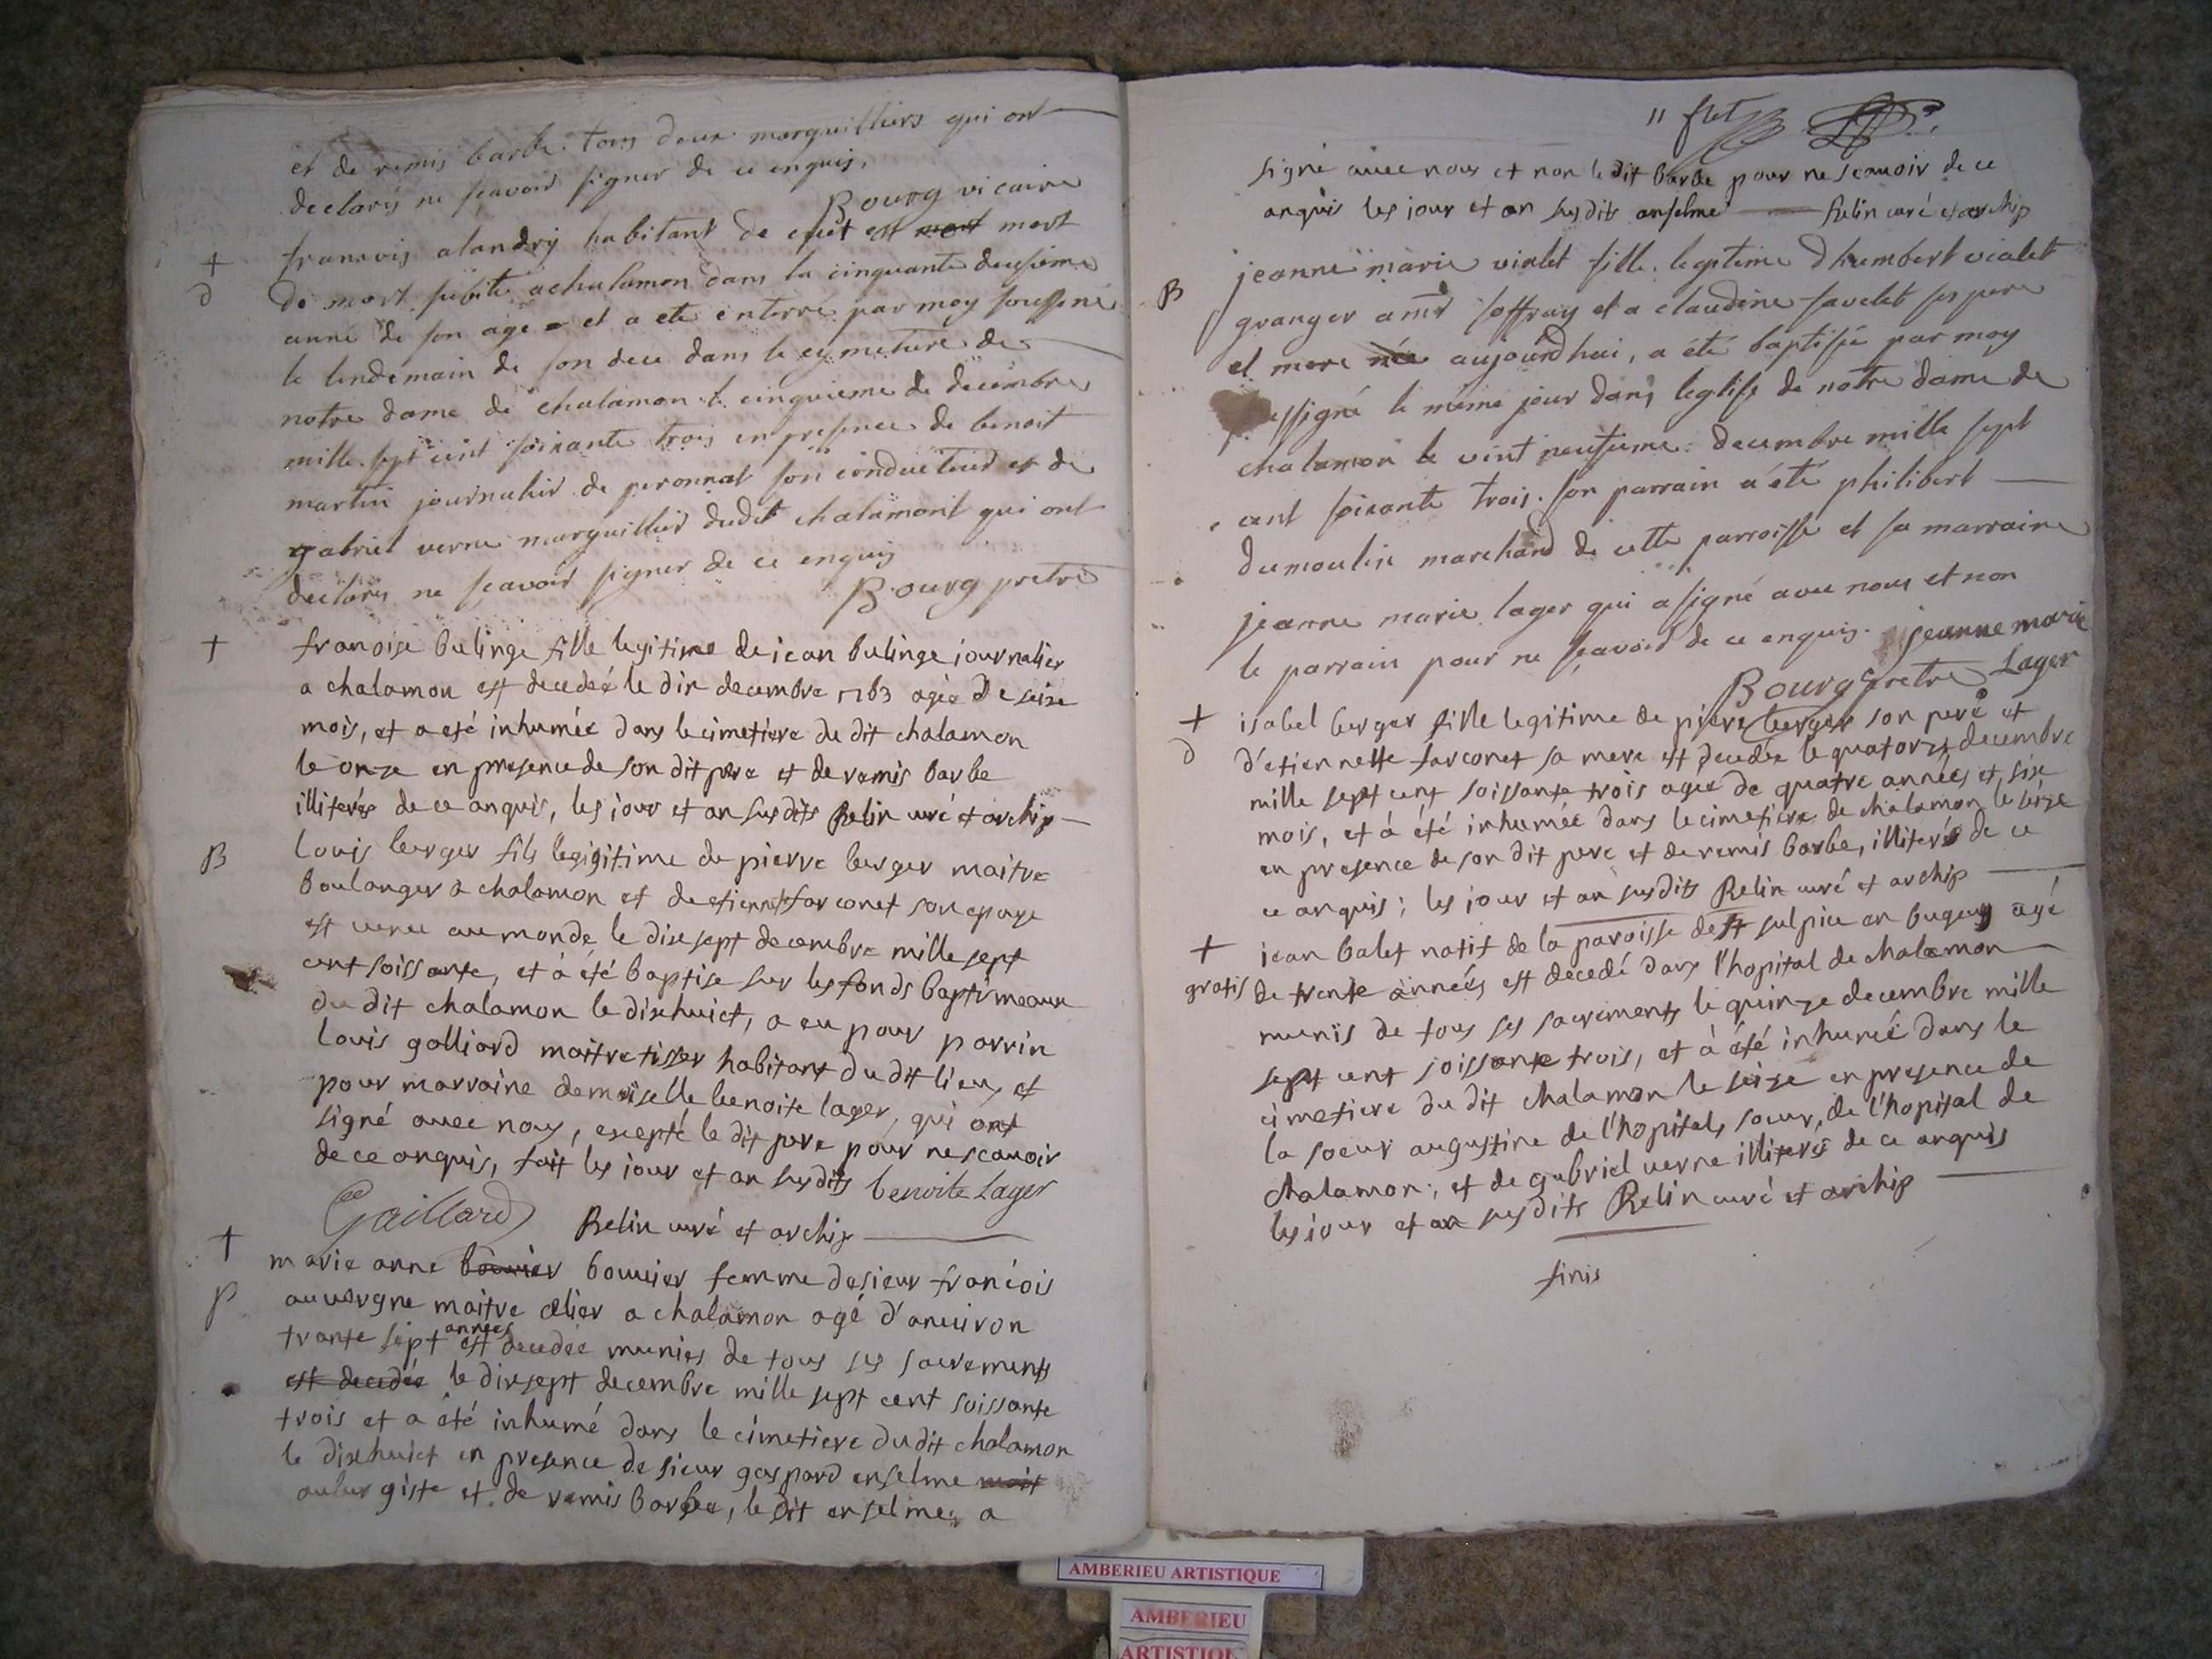 et de remis barbe tous deux marguilliers qui ont
declarés ne sçavoir signer de ce enquis,
Bourg vicaire
+ francois alandry habitant de est mort mort
d de mort subite a chalamon dans la cinquante deusieme
anné de son age et a eté enterré par moy soussigné
le lendemain de son dece dans le cymeture de
notre dame de chalamon le cinquieme de decembre
mille sept cent soixante trois en presence de benoit
martin journalier de peronnat son conducteur et de
gabriel verne marguillier dudit chalamont qui ont
declarés ne sçavoir signer de ce enquis
Bourg pretre
+ francoise bulinge fille legitime de jean bulinge journalier
a chalamon est decedeé le dix decembre 1763 ageé de seize
mois, et a eté inhumée dans le cimetiere du dit chalamon
le onze en presence de son dit pere et de remis barbe
illiterés de ce anquis, les jour et an susdits Relin curé et archip
B Louis berger fils legigitime de pierre berger maitre
boulanger a chalamon et de etiennette farconet son epouse
est venu au monde le dixsept decembre mille sept
cent soissante, et à été baptise sur les fonds baptimeaux
du dit chalamon le dixhuict, a eu pour parrin
Louis galliard maitre tisser habitant du dit lieu, et
pour marraine demoiselle benoite lager, qui ont
signé avec nous, excepté le dit pere pour ne scavoir
de ce anquis, fait les jour et an susdits benoite Lager
Gaillard Relin curé et archip
+ marie anne bouvier bouvier femme de sieur francois
p auvergne maitre celier a chalamon agé d'anviron
trante sept années est decedée munies de tous ses sacrements
est decedée le dixsept decembre mille sept cent soissante
trois et a été inhumé dans le cimetiere du dit chalamon
le dixhuict en presence de sieur gaspard enselme
aubergiste et de remis barbe, le dit enselme a
11 flet
signé avec nous et non le dit barbe pour ne scavoir de ce
anquis les jour et an susdits anselme Relin curé et archip
B jeanne marie violet fille legitime d'humbert violet
granger a soffray et a claudine favelet ses pere
et mere née aujourdhui, a été baptisée par moy
soussigné le même jour dans leglise de notre dame de
chalamon le vint neufieme decembre mille sept
cent soixante trois. son parrain a été philibert
dumoulin marchand de cette parroisse et sa marraine
jeanne marie lager qui a signé avec nous et non
le parrain pour ne sçavoir de ce enquis. jeanne marie
Bourg pretre Lager
+ isabel berger fille legitime de piere berger son peré et
d d'etiennette farconet sa mere est decedée le quatorze decembre
mille sept cent soissante trois ageé de quatre années et six
mois, et à été inhumée dans le cimetiere de chalamon le seize
en presence de son dit pere et de remis barbe, illiterés de ce
ce anquis; les jour et an susdits Relin curé et archip
+ jean balet natif de la paroisse de st sulpice en bugey agé
gratis de trente années est decedé dans l'hopital de chalamon
munis de tous ses sacrements le quinze decembre mille
sept cent soissante trois, et à été inhumé dans le
cimetiere du dit chalamon le seize en presence de
la soeur augustine de l'hopital, soeur de l'hopital de
chalamon, et de gabriel verne illiterés de ce anquis
les jour et an susdits Relin curé et archip
finis
AMBERIEU ARTISTIQUE
AMBERIEU
ARTISTIQU